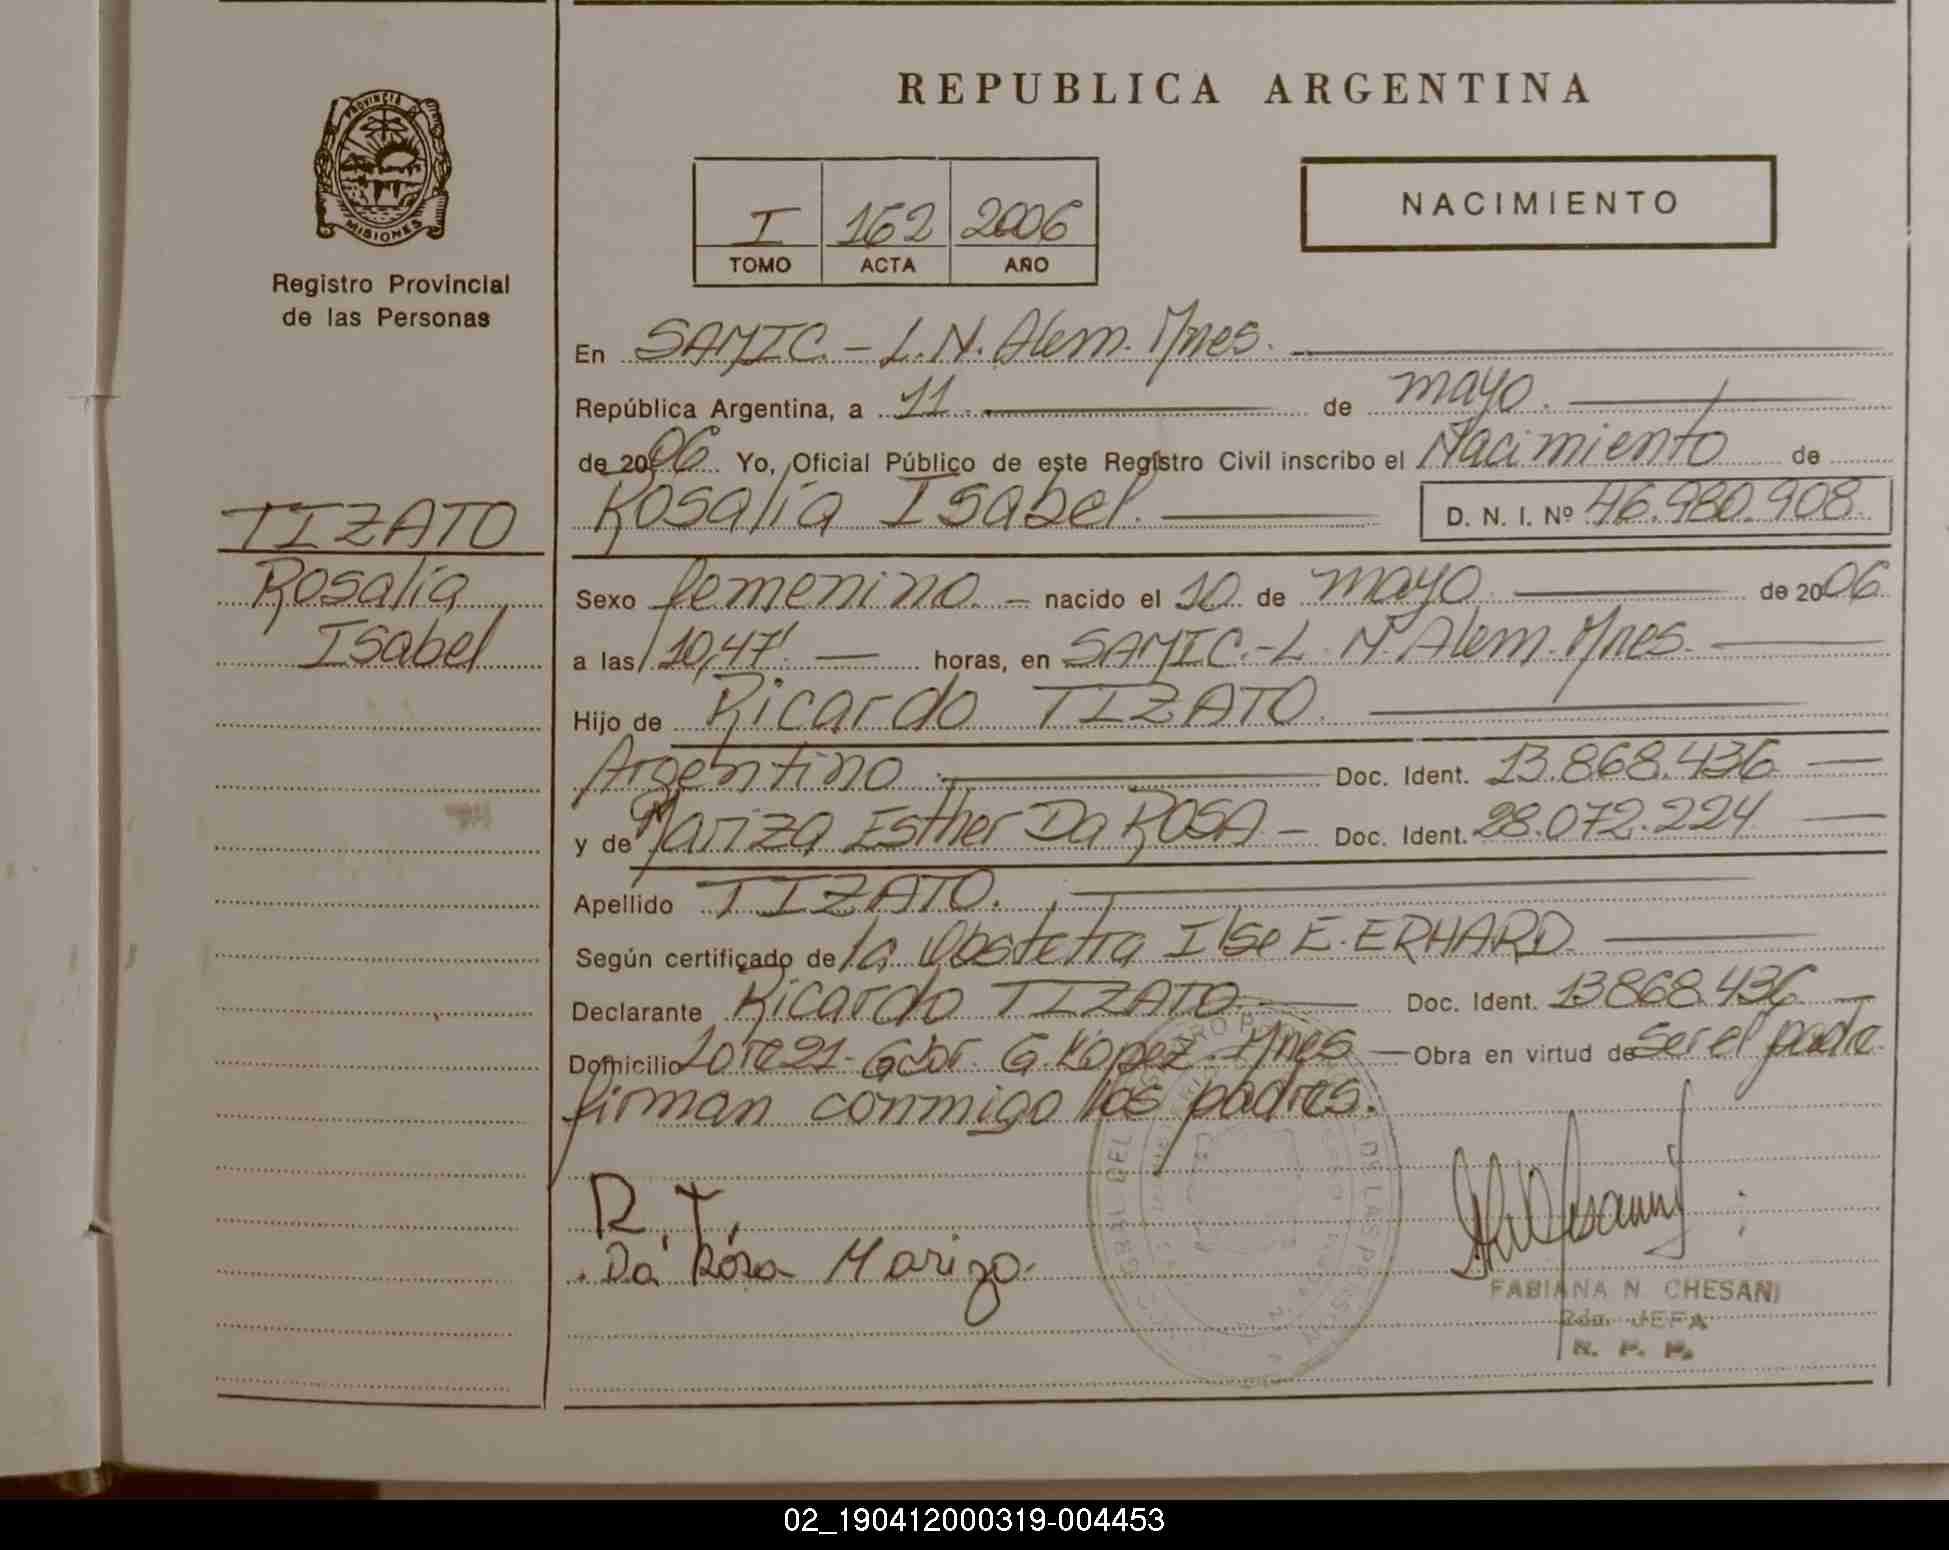 REPUBLICA ARGENTINA
PROVINCIA D
MISIONES
Registro Provincial
de las Personas
I 162 2006
TOMO ACTA AÑO
NACIMIENTO
En SAMIC. - L. N. Alem. Mnes.
República Argentina, a 11 de mayo.
de 2006 Yo, Oficial Público de este Registro Civil inscribo el Nacimiento de
Rosalia Isabel. D. N. I. Nº 46.980.908.
TIZATO
Rosalia
Isabel
Sexo femenino. - nacido el 10 de mayo de 2006
a las 10,47' horas, en SAMIC.-L. N. Alem. Mnes.
Hijo de Ricardo TIZATO.
Argentino Doc. Ident. 13.868.436
y de Mariza Esther Da ROSA - Doc. Ident. 28.072.224
Apellido TIZATO.
Según certificado de la Obstetra Ilse E. ERHARD.
Declarante Ricardo TIZATO Doc. Ident. 13868.436
Domicilio Lote 21- Gdor. G. López. Mnes Obra en virtud de ser el padre
firman conmigo los padres.
R. T.
Da Rosa Mariza.
FABIANA N. CHESANI
2da. JEFA
R. P. P.
02_190412000319-004453